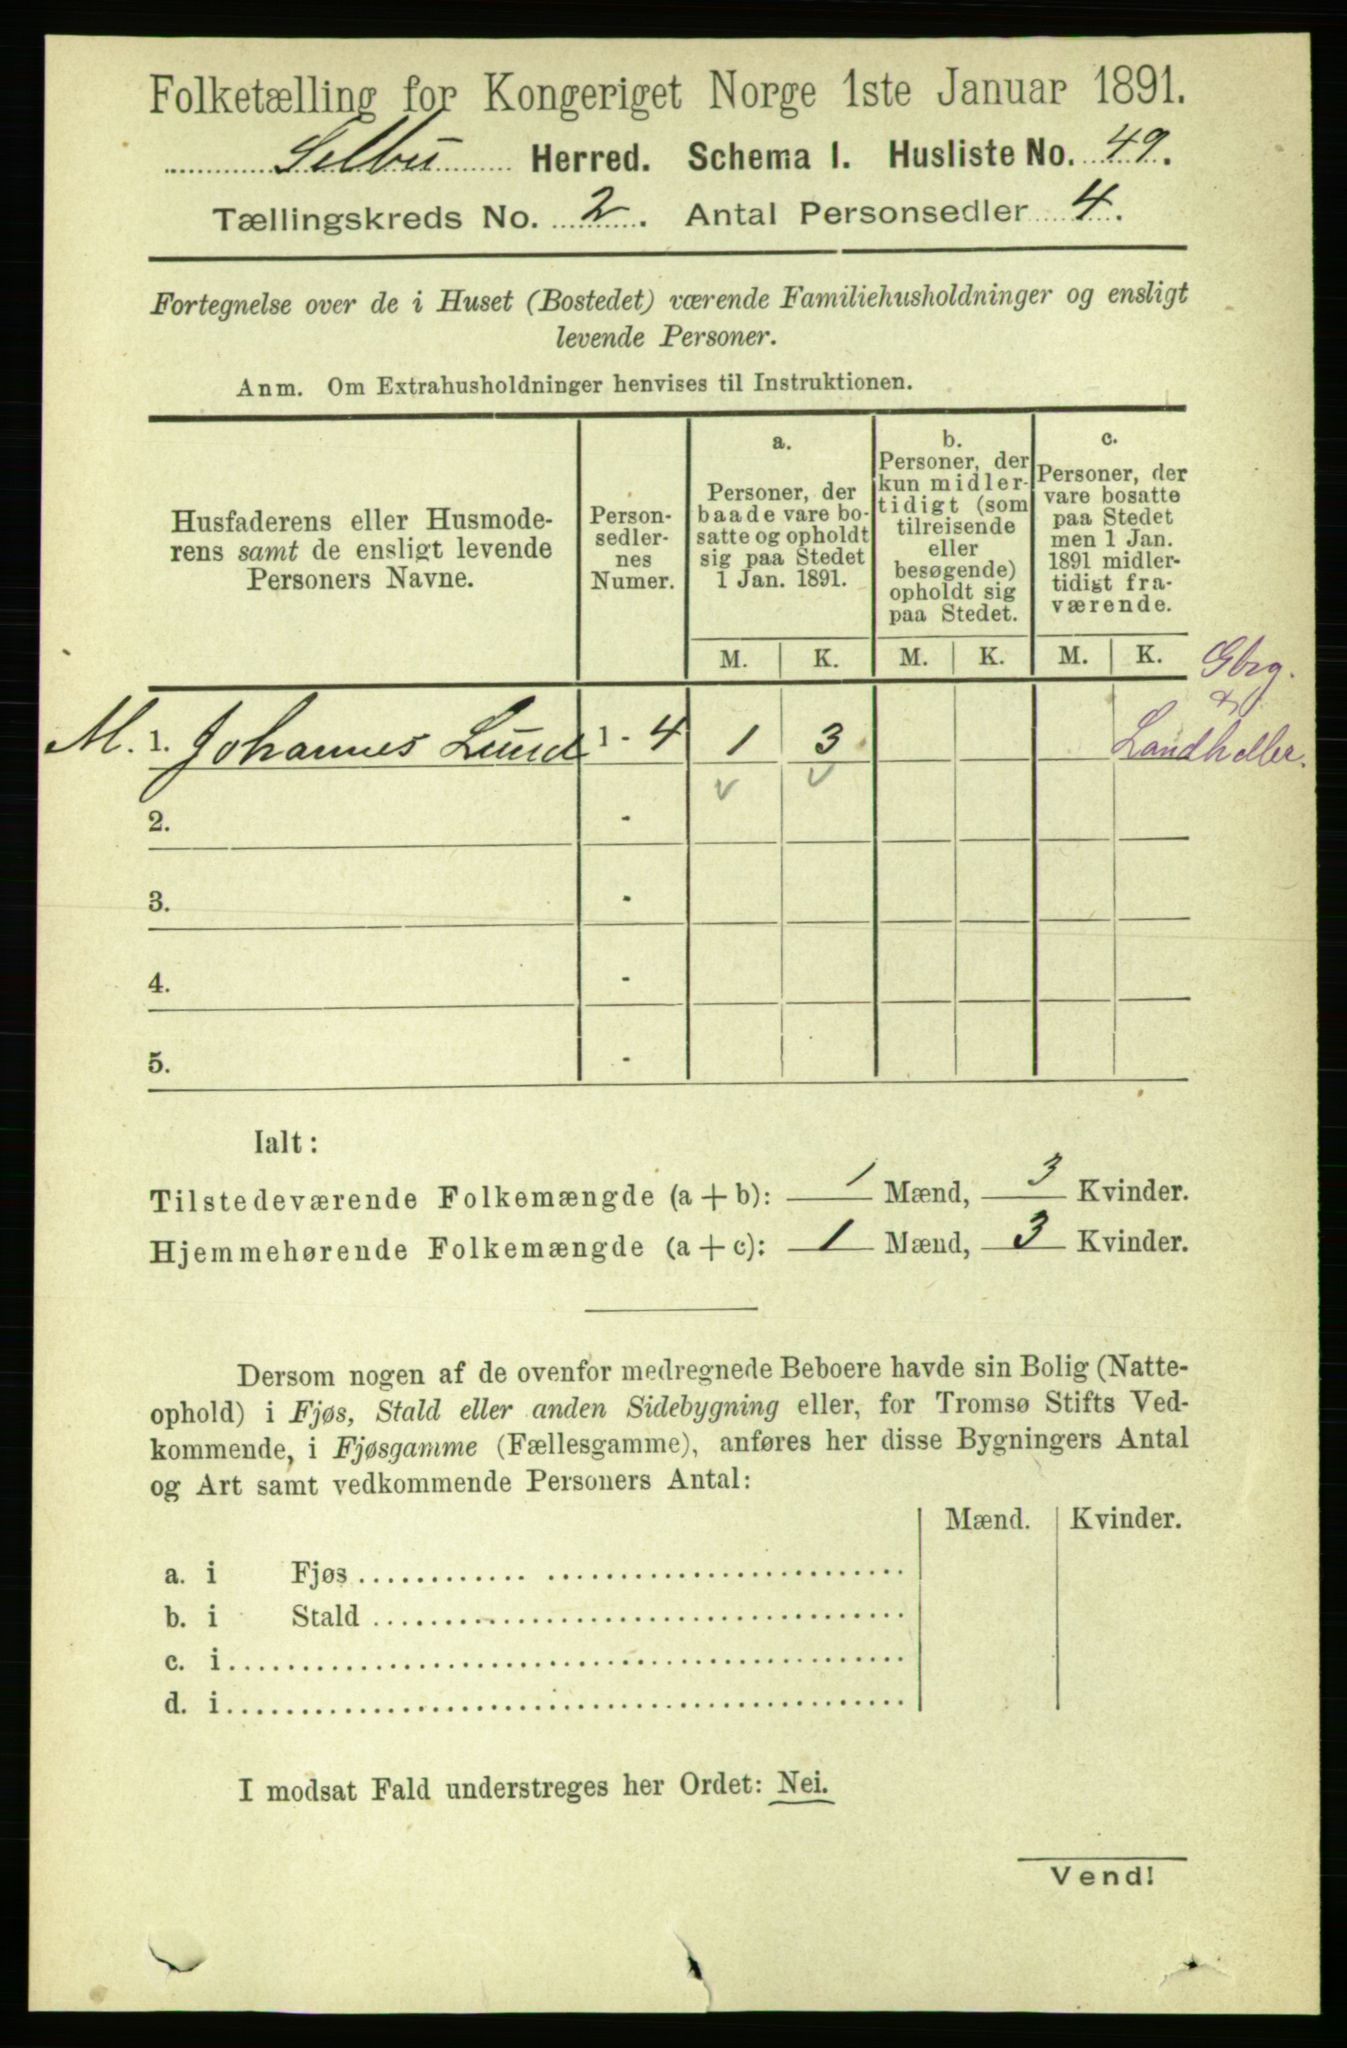 Folketælling for Kongeriget Norge 1ste Januar 1891.
Selbu Herred. Schema I. Husliste No. 49.
Tællingskreds No. 2. Antal Personsedler 4.
Fortegnelse over de i Huset (Bostedet) værende Familiehusholdninger og ensligt
levende Personer.
Anm. Om Extrahusholdninger henvises til Instruktionen.
Husfaderens eller Husmode-
rens samt de ensligt levende
Personers Navne.
Person-
sedler-
nes
Numer.
a.
Personer, der
baade vare bo-
satte og opholdt
sig paa Stedet
1 Jan. 1891.
b.
Personer, der
kun midler-
tidigt (som
tilreisende
eller
besøgende)
opholdt sig
paa Stedet.
c.
Personer, der
vare bosatte
paa Stedet
men 1 Jan.
1891 midler-
tidigt fra-
værende.
M. K. M. K. M. K.
Gbrg.
&
Landheller.
M. 1. Johannes Lund 1 - 4 1 3
2. -
3. -
4. -
5. -
Ialt:
Tilstedeværende Folkemængde (a + b): 1 Mænd, 3 Kvinder.
Hjemmehørende Folkemængde (a + c): 1 Mænd, 3 Kvinder.
Dersom nogen af de ovenfor medregnede Beboere havde sin Bolig (Natte-
ophold) i Fjøs, Stald eller anden Sidebygning eller, for Tromsø Stifts Ved-
kommende, i Fjøsgamme (Fællesgamme), anføres her disse Bygningers Antal
og Art samt vedkommende Personers Antal:
Mænd. Kvinder.
a. i Fjøs
b. i Stald
c. i
d. i
I modsat Fald understreges her Ordet: Nei.
Vend!